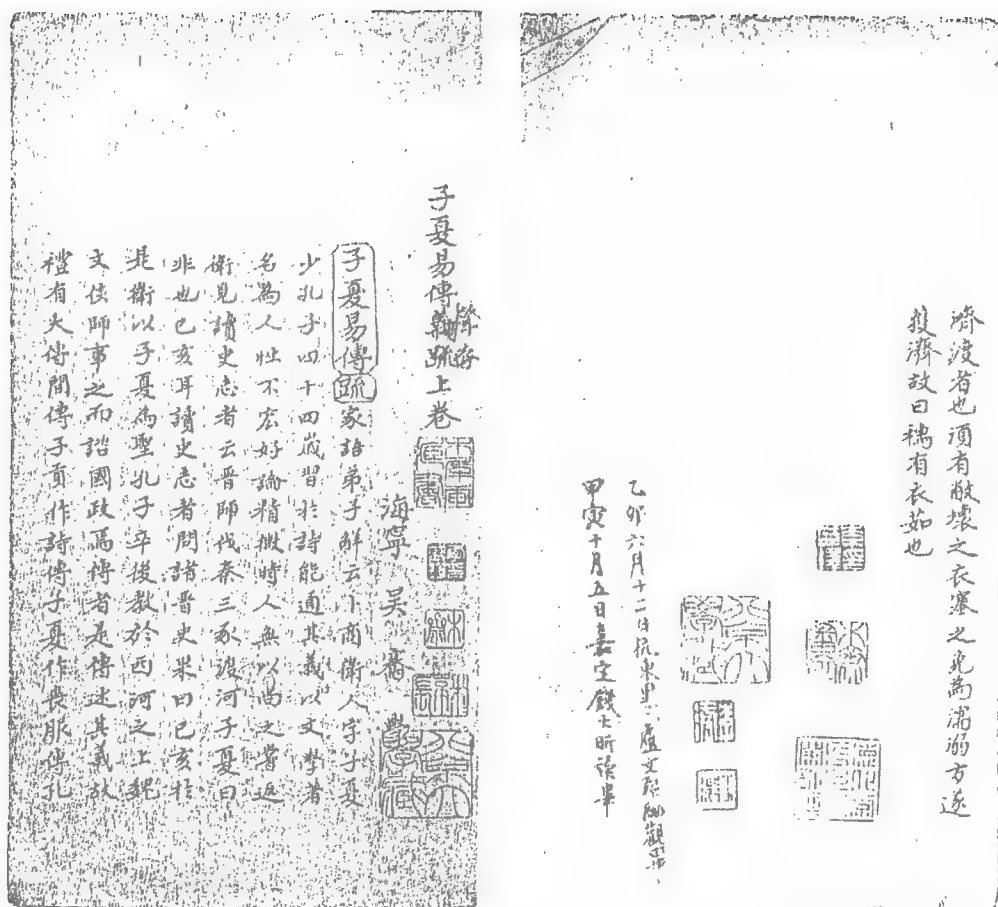 濟渡者也須有敝壞之衣塞之免為濡溺方遂
獲濟故曰繻有衣茹也
乙卯六月十二日杭東里盧文弨細觀
甲寅十月五日嘉定錢大昕讀畢
子夏易傳義疏上卷
釋存
海寧 吳騫 學
子夏易傳疏家語弟子解云卜商衛人字子夏
少孔子四十四歲習於詩能通其義以文學著
名為人性不宏好論精微時人無以尚之嘗返
衛見讀史志者云晉師伐秦三豕渡河子夏曰
非也己亥耳讀史志者問諸晉史果曰己亥於
是衛以子夏為聖孔子卒後教於西河之上魏
文侯師事之而諮國政焉傳者是傳述其義故
禮有大傳間傳子貢作詩傳子夏作喪服傳孔